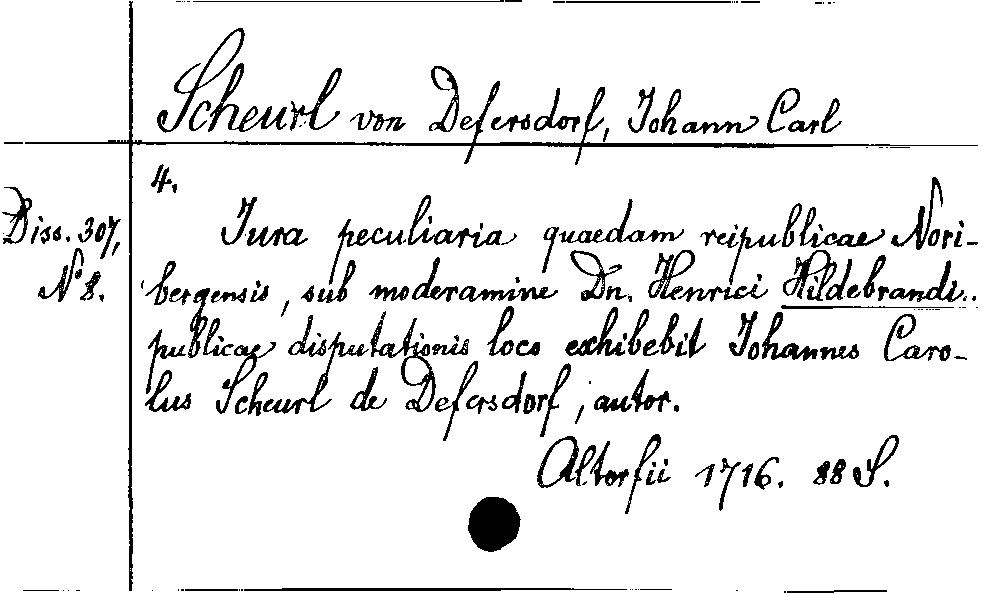 Scheurl von Defersdorf, Johann Carl
4.
Diss. 307,
N° 8.
Jura peculiaria quaedam reipublicae Nori-
bergensis, sub moderamine Dn. Henrici Hildebrandi..
publicae disputationis loco exhibebit Johannes Caro-
lus Scheurl de Defersdorf, autor.
Altorfii 1716. 88 S.